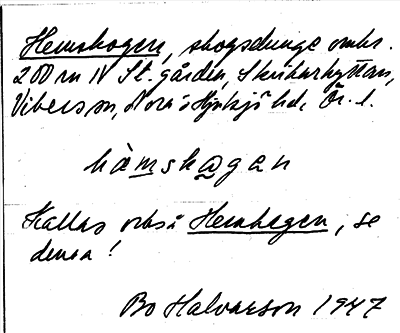 Hemskogen, skogsdunge omkr.
200 m N St. gården, Skrikarhyttan,
Vibersson, Nora o Hjulsjö hd, Ör. l.
hàmskågan
Kallas också Hemhagen, se
denna!
Bo Halvarson 1947